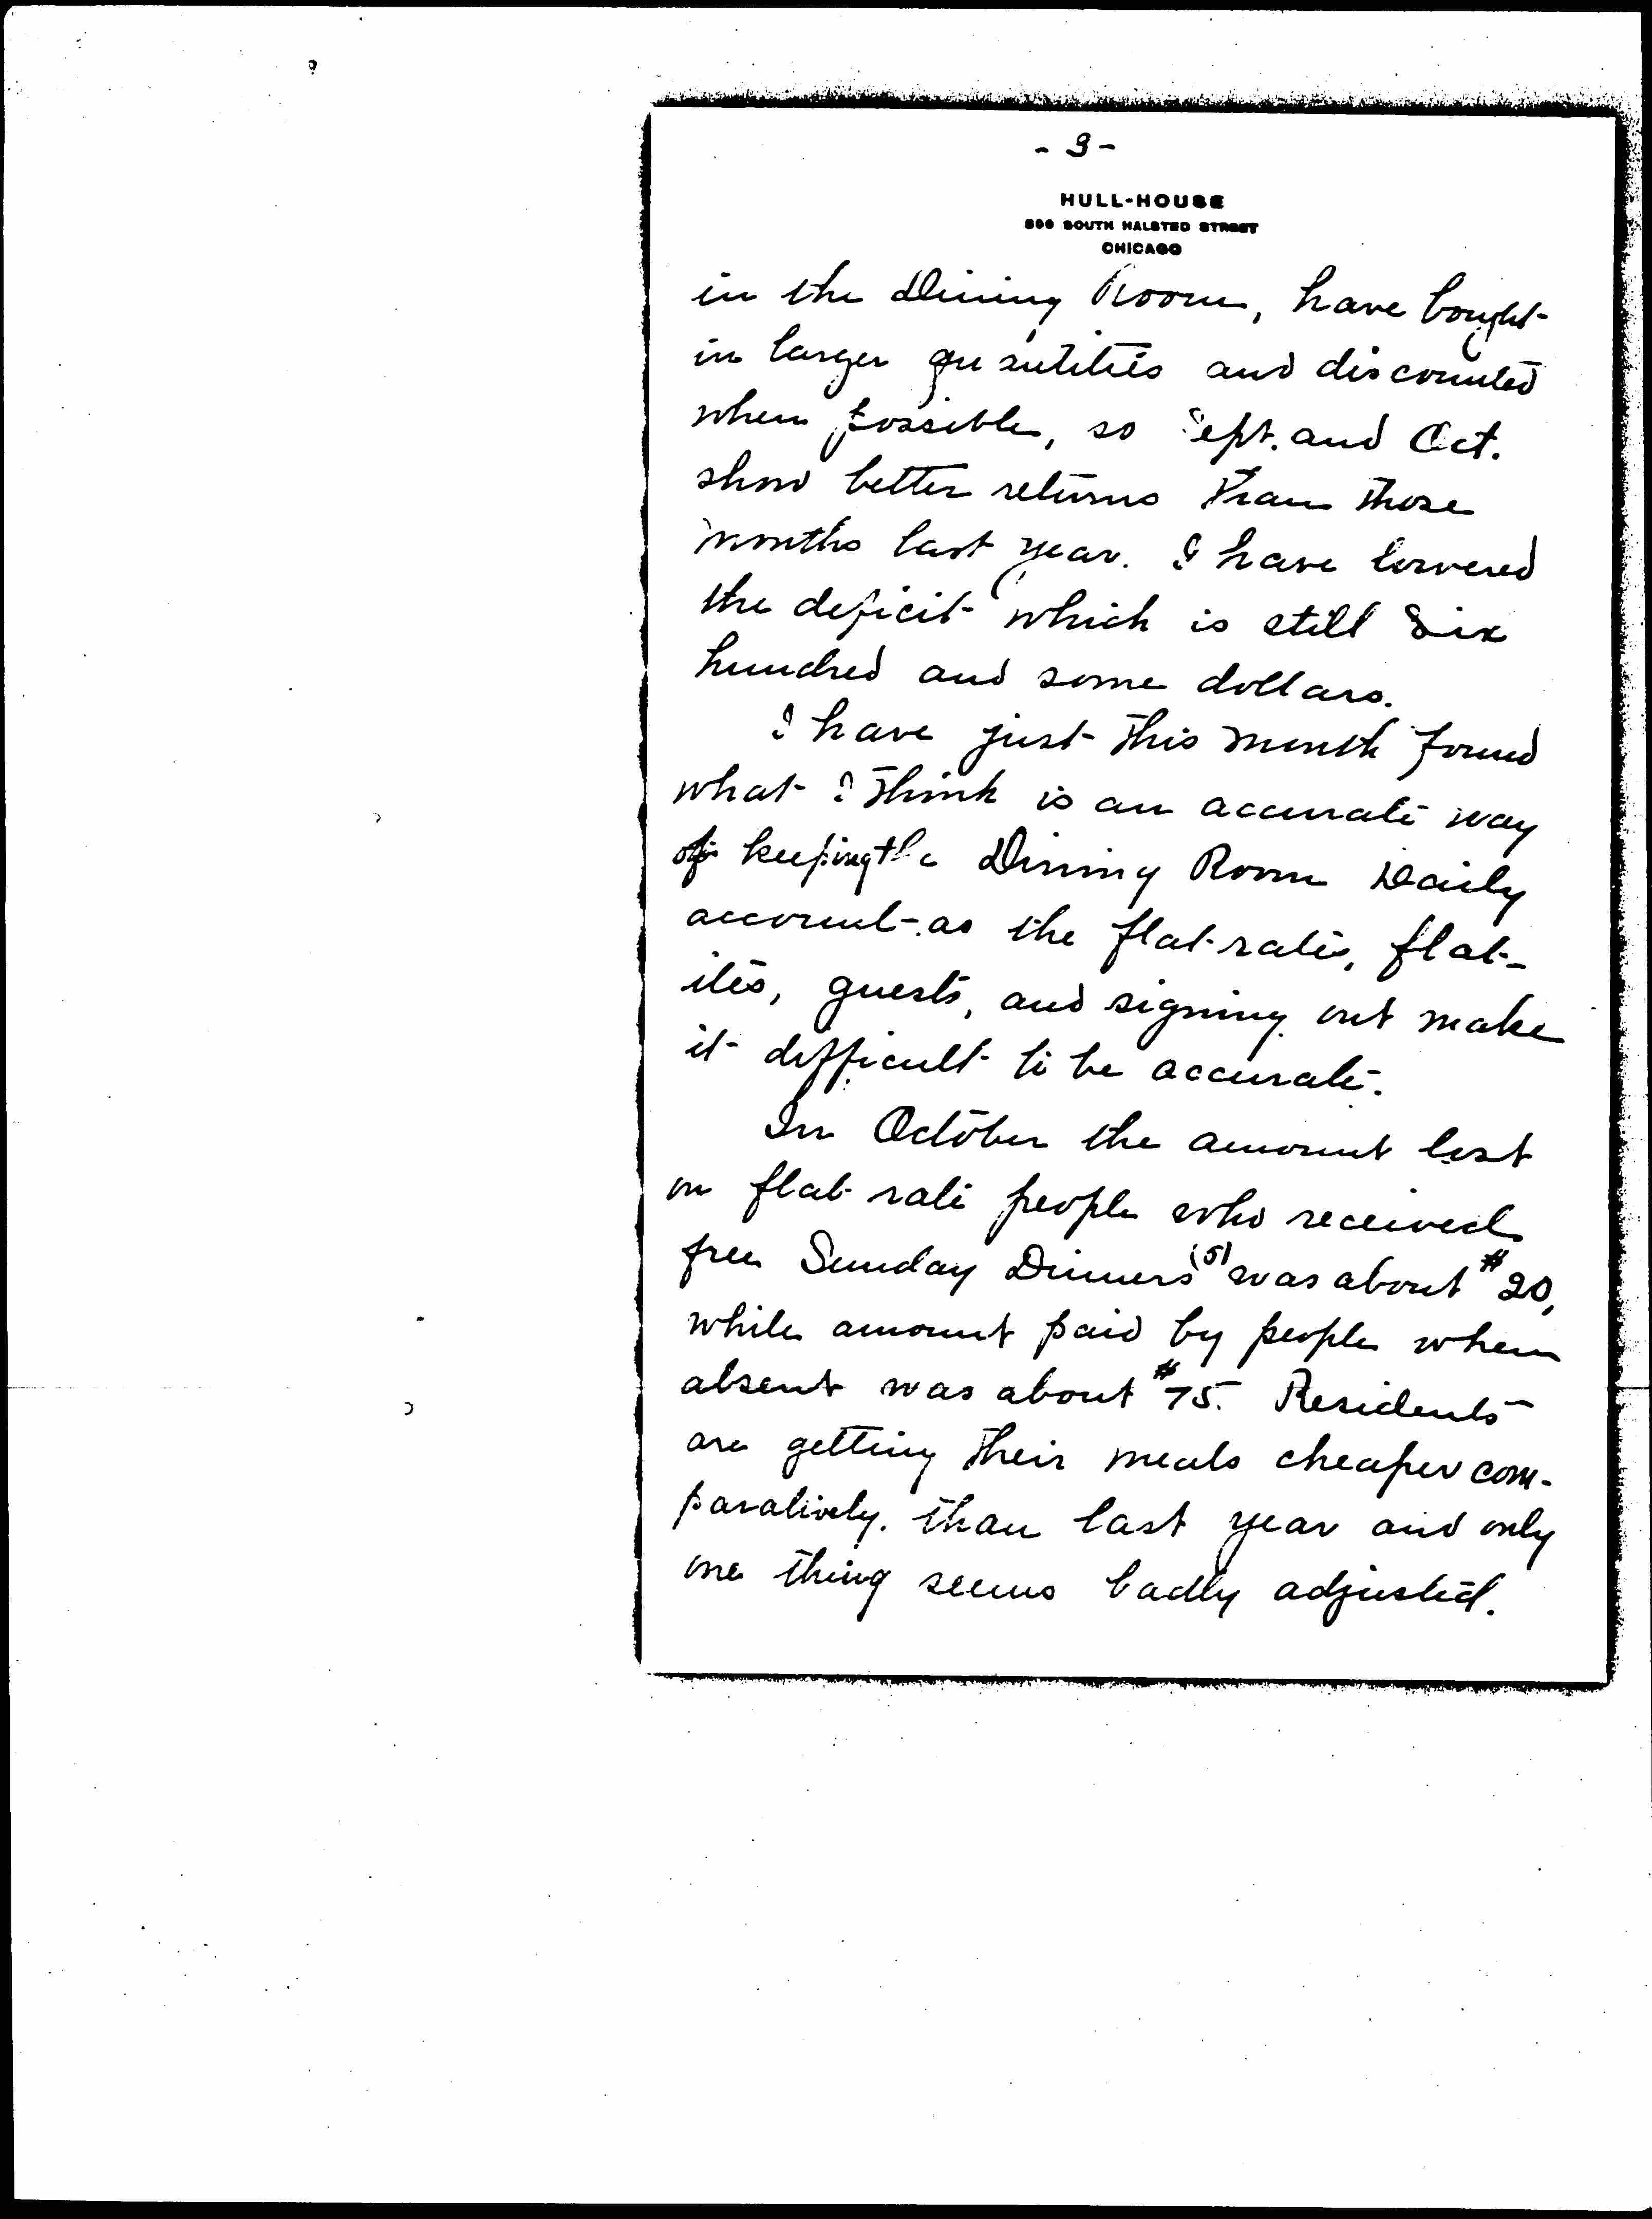 - 3 -
HULL-HOUSE
800 SOUTH HALSTED STREET
CHICAGO
in the Dining Room, have bought
in larger quantities and discounted
when possible, so Sept. and Oct.
show better returns than those
months last year. I have lowered
the deficit which is still Six
hundred and some dollars.
I have just this month found
what I think is an accurate way
of keeping the Dining Room Daily
account - as the flat-rates, flat-
ites, guests, and signing out make
it difficult to be accurate.
In October the amount lost
on flat rate people who received
free Sunday Dinners (5) was about $20,
while amount paid by people when
absent was about $75. Residents
are getting their meals cheaper com-
paratively. than last year and only
one thing seems badly adjusted.